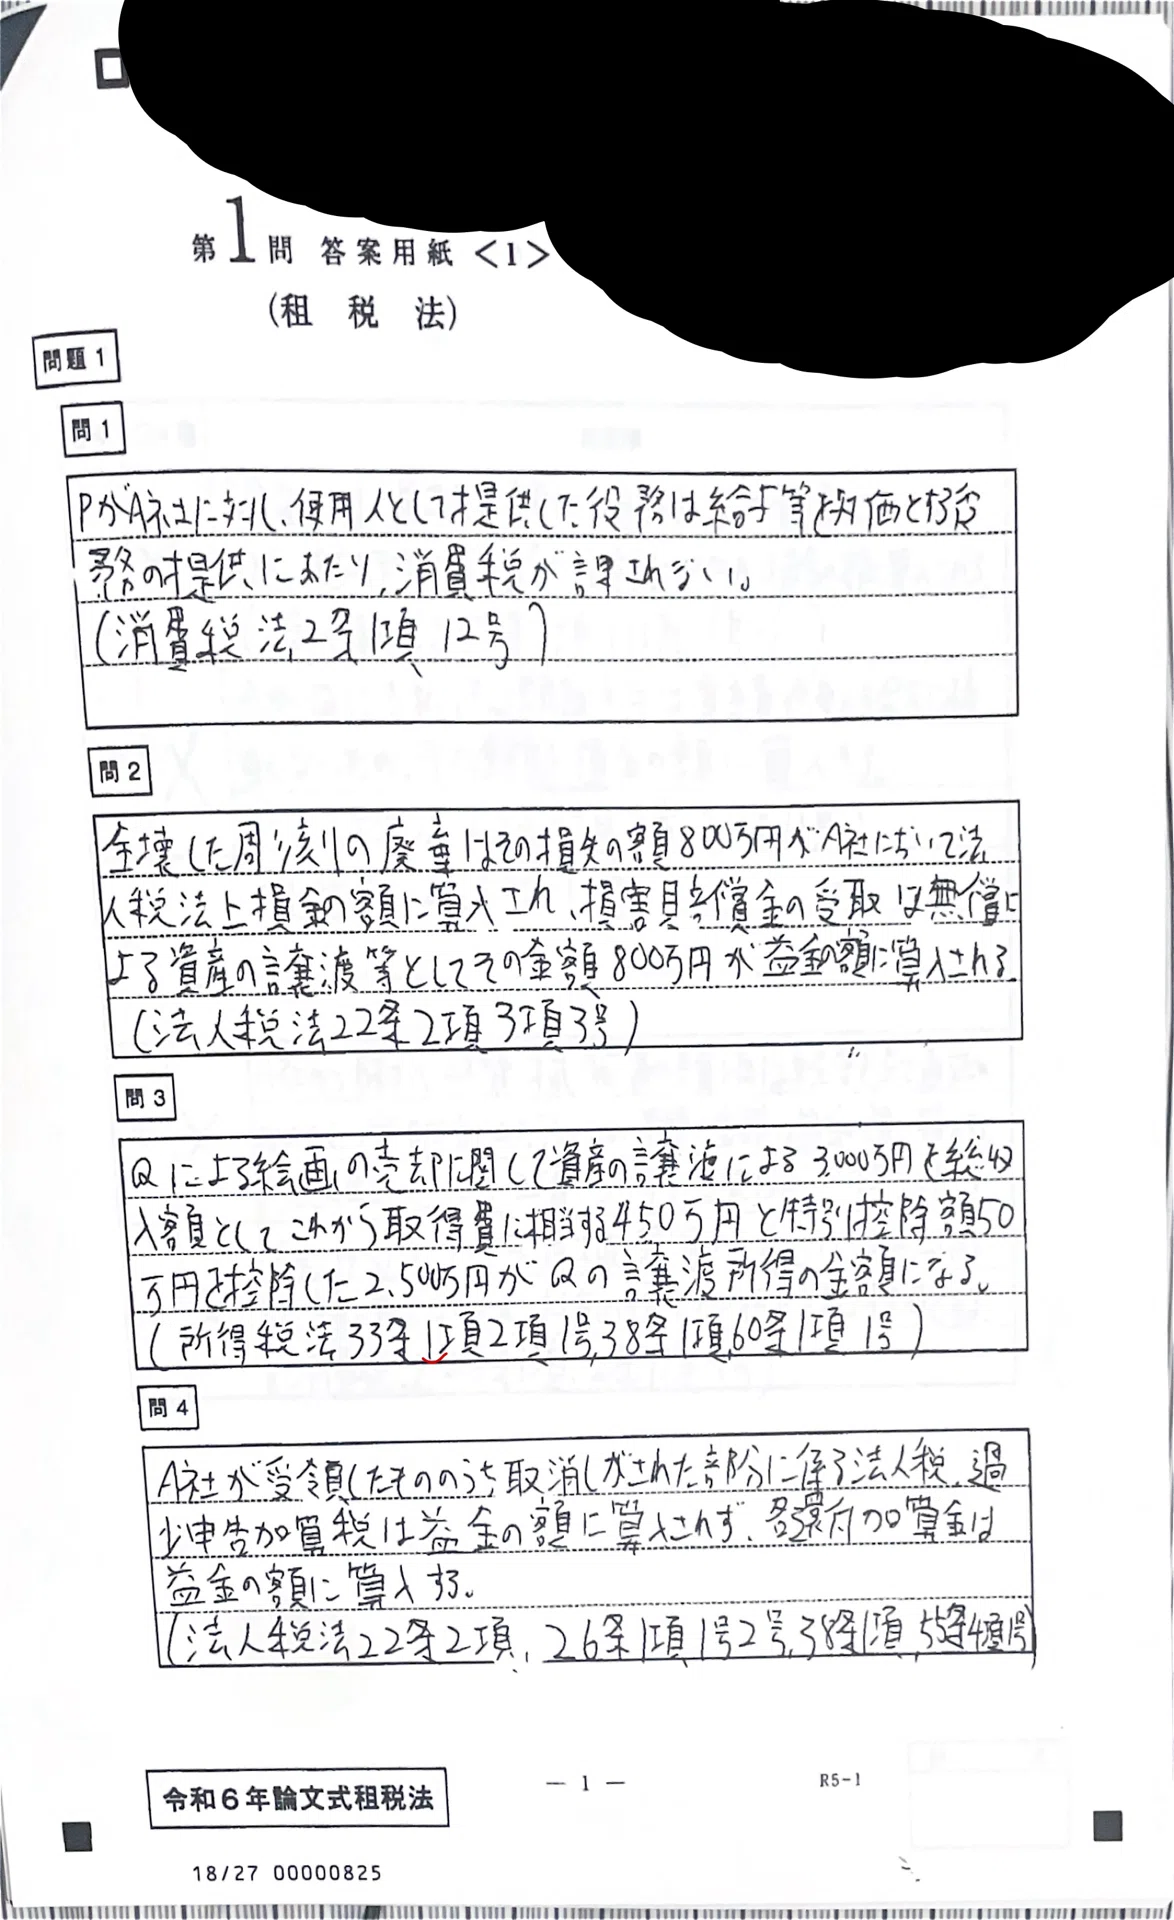 第1問 答案用紙<1>
(租税法)
問題1
問1
PがA社に対し、使用人として提供した役務は給与等を対価とする役
務の提供にあたり、消費税が課されない。
(消費税法2条1項12号)
問2
全壊した周り刻りの廃棄はその損失の額800万円がA社において法
人税法上損金の額に算入され、損害賠償金の受取は無償に
よる資産の譲渡等としてその金額800万円が益金の額に算入される
(法人税法22条2項3項3号)
問3
Qによる絵画の売却に関して資産の譲渡による3,000万円を総収
入額としてこれから取得費に相当する450万円と特別控除額50
万円を控除した2,500万円がQの譲渡所得の金額になる。
(所得税法33条1項2項1号,38条1項,60条1項1号)
問4
A社が受領したもののうち取消しがされた部分に係る法人税、過
少申告加算税は益金の額に算入されず、各還付加算金は
益金の額に算入する。
(法人税法22条2項、26条1項1号2号,38条1項,55条4項1号)
令和6年論文式租税法
— 1 —
R5-1
18/27 00000825